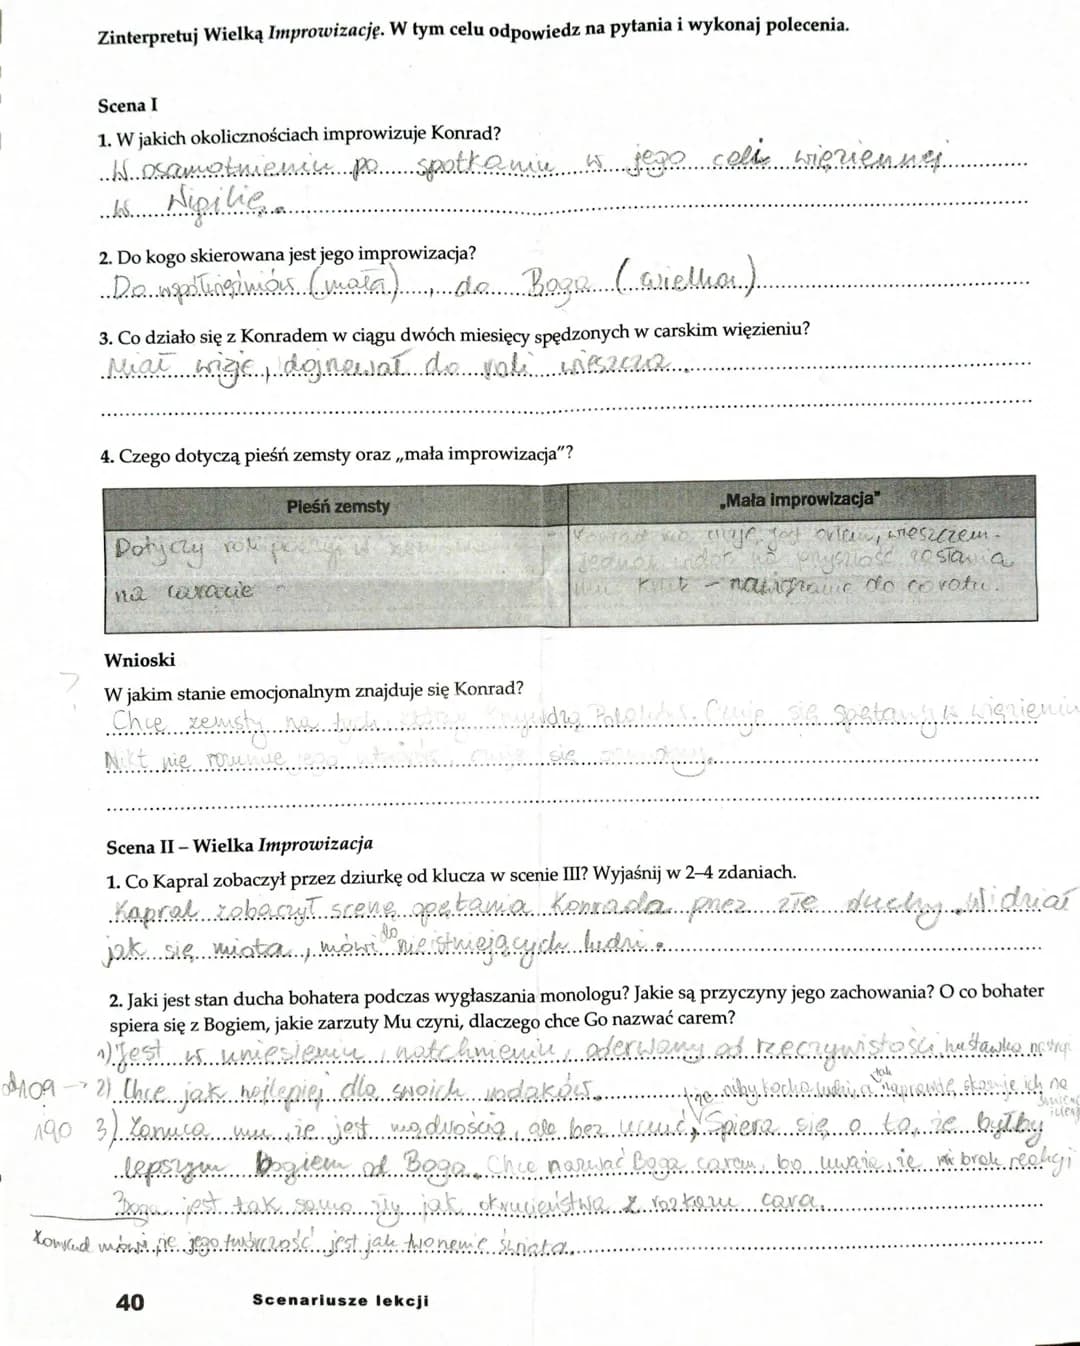 Zinterpretuj Wielką Improwizację. W tym celu odpowiedz na pytania i wykonaj polecenia.
Scena I
1. W jakich okolicznościach improwizuje Konrad?
W osamotnieniu po spotkaniu w jego celi więziennej
w Wigilię.
2. Do kogo skierowana jest jego improwizacja?
Do współwięźniów (mała), do Boga (wielka)
3. Co działo się z Konradem w ciągu dwóch miesięcy spędzonych w carskim więzieniu?
Miał wizje, dojrzewał do roli wieszcza.
4. Czego dotyczą pieśń zemsty oraz „mała improwizacja”?
Pieśń zemsty
„Mała improwizacja”
Dotyczy roli poezji w
na caracie
Konrad jest orłem, wieszczem.
jednak na przyszłość zasłania
kruk – nawiązanie do caratu.
Wnioski
?
W jakim stanie emocjonalnym znajduje się Konrad?
Chce zemsty na tych, krzywdzą Polaków. Czuje się spętany w więzieniu
Nikt nie rozumie jego czuje się
Scena II – Wielka Improwizacja
1. Co Kapral zobaczył przez dziurkę od klucza w scenie III? Wyjaśnij w 2–4 zdaniach.
Kapral zobaczył scenę opętania Konrada przez złe duchy. Widział
jak się miota, mówi do nieistniejących ludzi.
2. Jaki jest stan ducha bohatera podczas wygłaszania monologu? Jakie są przyczyny jego zachowania? O co bohater
spiera się z Bogiem, jakie zarzuty Mu czyni, dlaczego chce Go nazwać carem?
1) Jest w uniesieniu, natchnieniu, oderwany od rzeczywistości, huśtawka
109 → 2) Chce jak najlepiej dla swoich rodaków. że niby kocha ludzi, a tak naprawdę skazuje ich na
190 3) Zarzuca mu, że jest mądrością, ale bez uczuć, Spiera się o to, że byłby
lepszym Bogiem od Boga. Chce nazwać Boga carem, bo uważa, że brak reakcji
Boga jest tak samo zły jak okrucieństwa z rozkazu cara.
Konrad mówi, że jego twórczość jest jak tworzenie świata.
40 Scenariusze lekcji